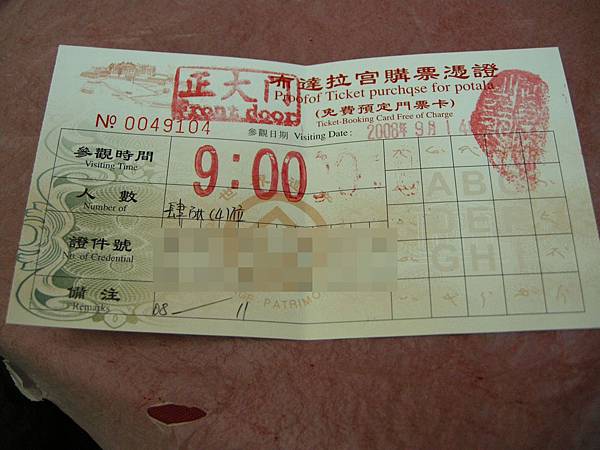 正大門
front door
布達拉宮購票憑證
Proofof Ticket purchqse for potala
(免費預定門票卡)
Ticket-Booking Card Free of Charge
№ 0049104
參觀日期 Visiting Date: 2008年 9月14
參觀時間
Visiting Time
9:00
人數
Number of
肆 (4)位
證件號
No. of Credential
備注
Remarks
08 — 11
ABC
DE
GH
PATRIMO